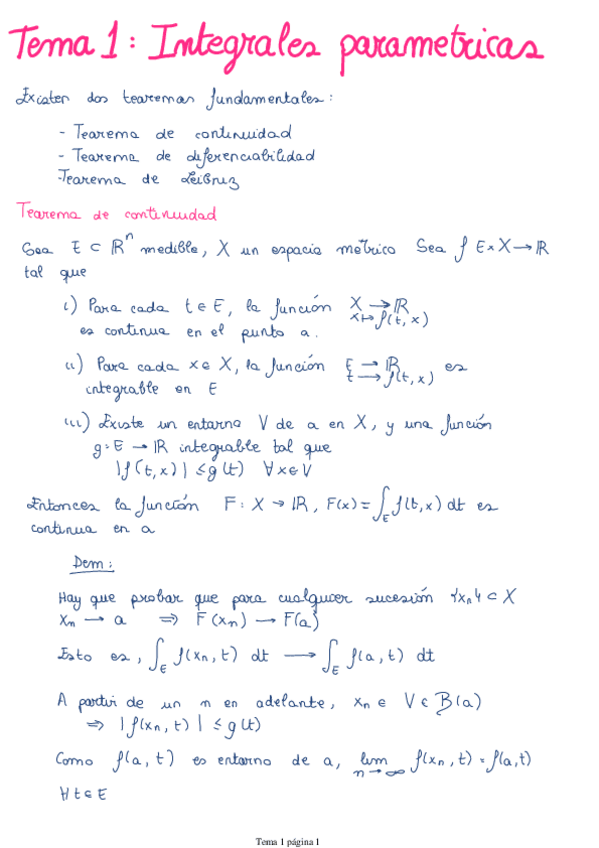 Tema 1: Integrales parametricas
Existen dos teoremas fundamentales:
- Teorema de continuidad
- Teorema de diferenciabilidad
-Teorema de Leibniz
Teorema de continuidad
Sea E ⊂ ℝⁿ medible, X un espacio métrico Sea f E×X→ℝ
tal que
i) Para cada t ∈ E, la función X → ℝ
x ↦ f(t, x)
es continua en el punto a.
ii) Para cada x ∈ X, la función E → ℝ es
t → f(t, x)
integrable en E
iii) Existe un entorno V de a en X, y una función
g: E → ℝ integrable tal que
|f(t,x)| ≤ g(t) ∀x∈V
Entonces la función F: X → ℝ, F(x) = ∫_E f(t,x) dt es
continua en a
Dem:
Hay que probar que para cualquier sucesión {xₙ} ⊂ X
xₙ → a ⇒ F(xₙ) → F(a)
Esto es, ∫_E f(xₙ, t) dt → ∫_E f(a, t) dt
A partir de un n en adelante, xₙ ∈ V ∈ B(a)
⇒ |f(xₙ, t)| ≤ g(t)
Como f(a, t) es entorno de a, lim n→∞ f(xₙ, t) = f(a,t)
∀t∈E
Tema 1 página 1